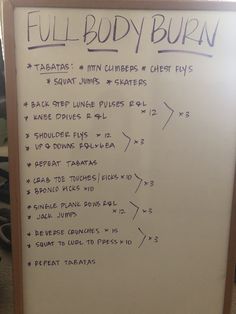 FULL BODY BURN
* TABATAS: * MTN CLIMBERS * CHEST FLYS
* SQUAT JUMPS * SKATERS
* BACK STEP LUNGE PULSES R&L
* KNEE DRIVES R&L > x 12 > x 3
* SHOULDER FLYS x 12
* UP & DOWNS R&L x 6 EA > x 3
* REPEAT TABATAS
* CRAB TOE TOUCHES/KICKS x 10
* BRONCO KICKS x 10 > x 3
* SINGLE PLANK ROWS R&L
* JACK JUMPS > x 12 > x 3
* REVERSE CRUNCHES x 15
* SQUAT TO CURL TO PRESS x 10 > x 3
* REPEAT TABATAS